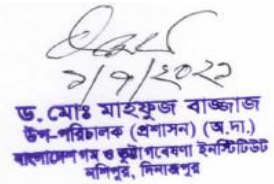 ১/৭/২০২১
ড. মোঃ মাহফুজ বাজ্জাজ
উপ-পরিচালক (প্রশাসন) (অ.দা.)
বাংলাদেশ গম ও ভুট্টা গবেষণা ইনস্টিটিউট
নশিপুর, দিনাজপুর